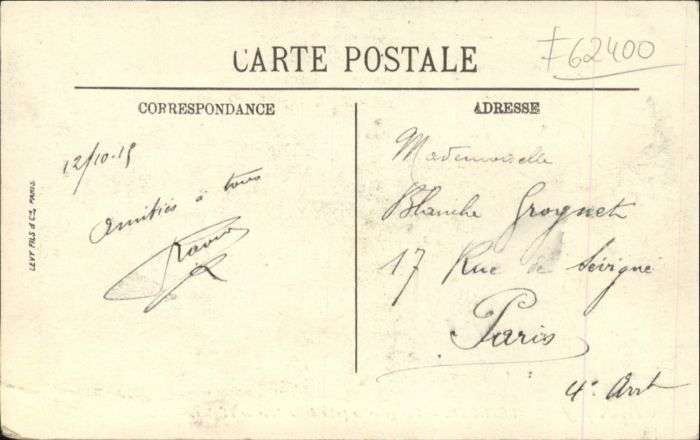 CARTE POSTALE
F62400
CORRESPONDANCE
12/10-15
Amitiés à tous
LEVY FILS & Cie, PARIS.
ADRESSE
Mademoiselle
Blanche Grognet
17 Rue de Sévigné
Paris
4e Arrt